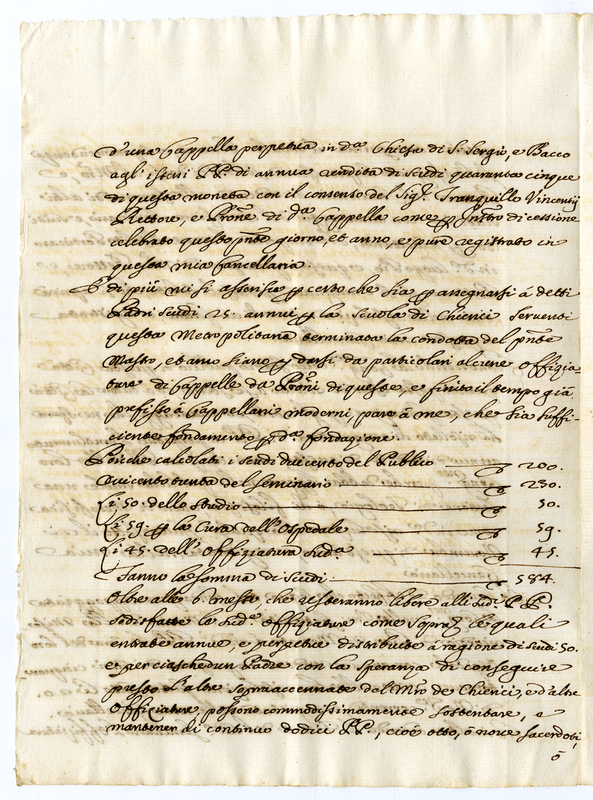 d'una Cappella perpetua in d.ª Chiesa di S. Sergio, e Bacco
agl'istessi PP. di annua rendita di Scudi quaranta cinque
di questa moneta con il consenso del Sig.r Tranquillo Vincentij
Rettore, e Prone di d.ª Cappella come p Instro di cessione
celebrato questo pnte giorno, et anno, e pure registrato in
questa mia Cancellaria.
E di più mi si asserisce p certo che sia p assegnarsi á detti
Padri Scudi 25. annui p la Scuola di Chierici serventi
questa Metropolitana terminata la condotta del pnte
Mastro, et anco siano p darsi da particolari alcune offizia-
ture di Cappelle da Proni di queste, e finito il tempo già
prefisso à Cappellani moderni, pare á me, che sia suffi-
ciente fondamento p d.ª fondazione.
Poiche calcolati i scudi duicento del Publico 200.
Duicento trenta del Seminario 230.
Li 50. dello Studio 50.
Li 59. p la Cura dell'Ospedale 59.
Li 45. dell'Offiziatura sud.ª 45.
Fanno la somma di Scudi 584.
Oltre alle 6. messe che resteranno libere alli sud.i PP.
sodisfatte le sud.e offiziature come sopra, le quali
entrate annue, e perpetue distribuite à ragione di scudi 50.
e per ciaschedun Padre con la speranza di conseguire
presto l'altre sopraaccennate del Mro de Chierici, e d'altre
Offiziature possono commodissimamente sostentare, e
mantener di continuo dodici PP., cioè otto, ò nove sacerdoti,
ò